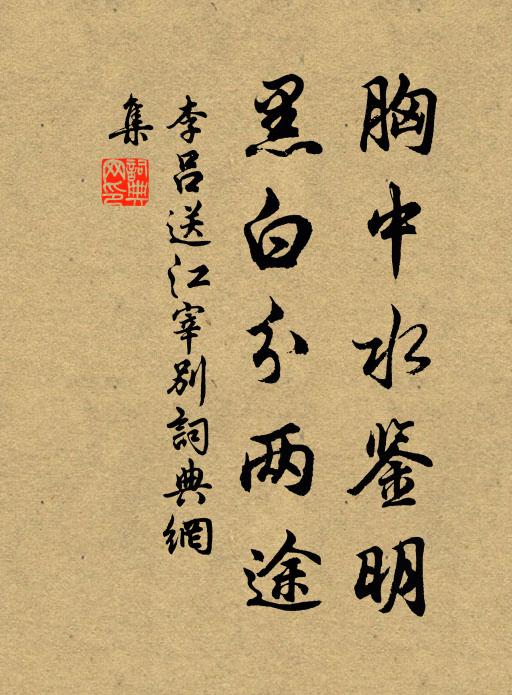 胸中水鉴明
黑白分两途
李吕送江宰别詞典網
集
詞典
网印